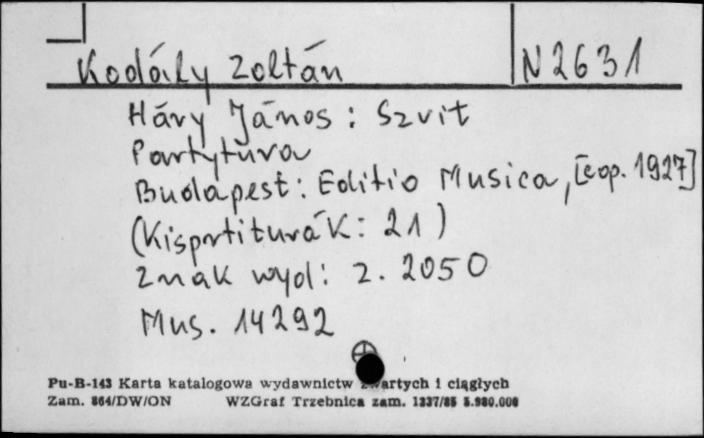 Kodály Zoltán N 2631
Háry János : Szvit
Partytura
Budapest : Editio Musica, [cop. 1927]
(Kisprtiturák : 21)
Znak wyd : Z. 2050
Mus. 14292
Pu-B-143 Karta katalogowa wydawnictw zwartych i ciągłych
Zam. 864/DW/ON WZGraf Trzebnica zam. 1337/85 5.980.000